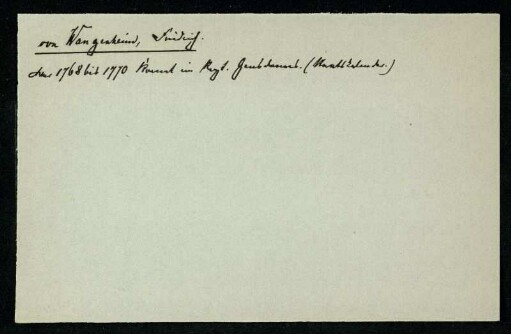 von Wangenheim, Friedrich.
1768 bis 1770 Kornet im Regt. Gensdarmes. (Staatskalender.)